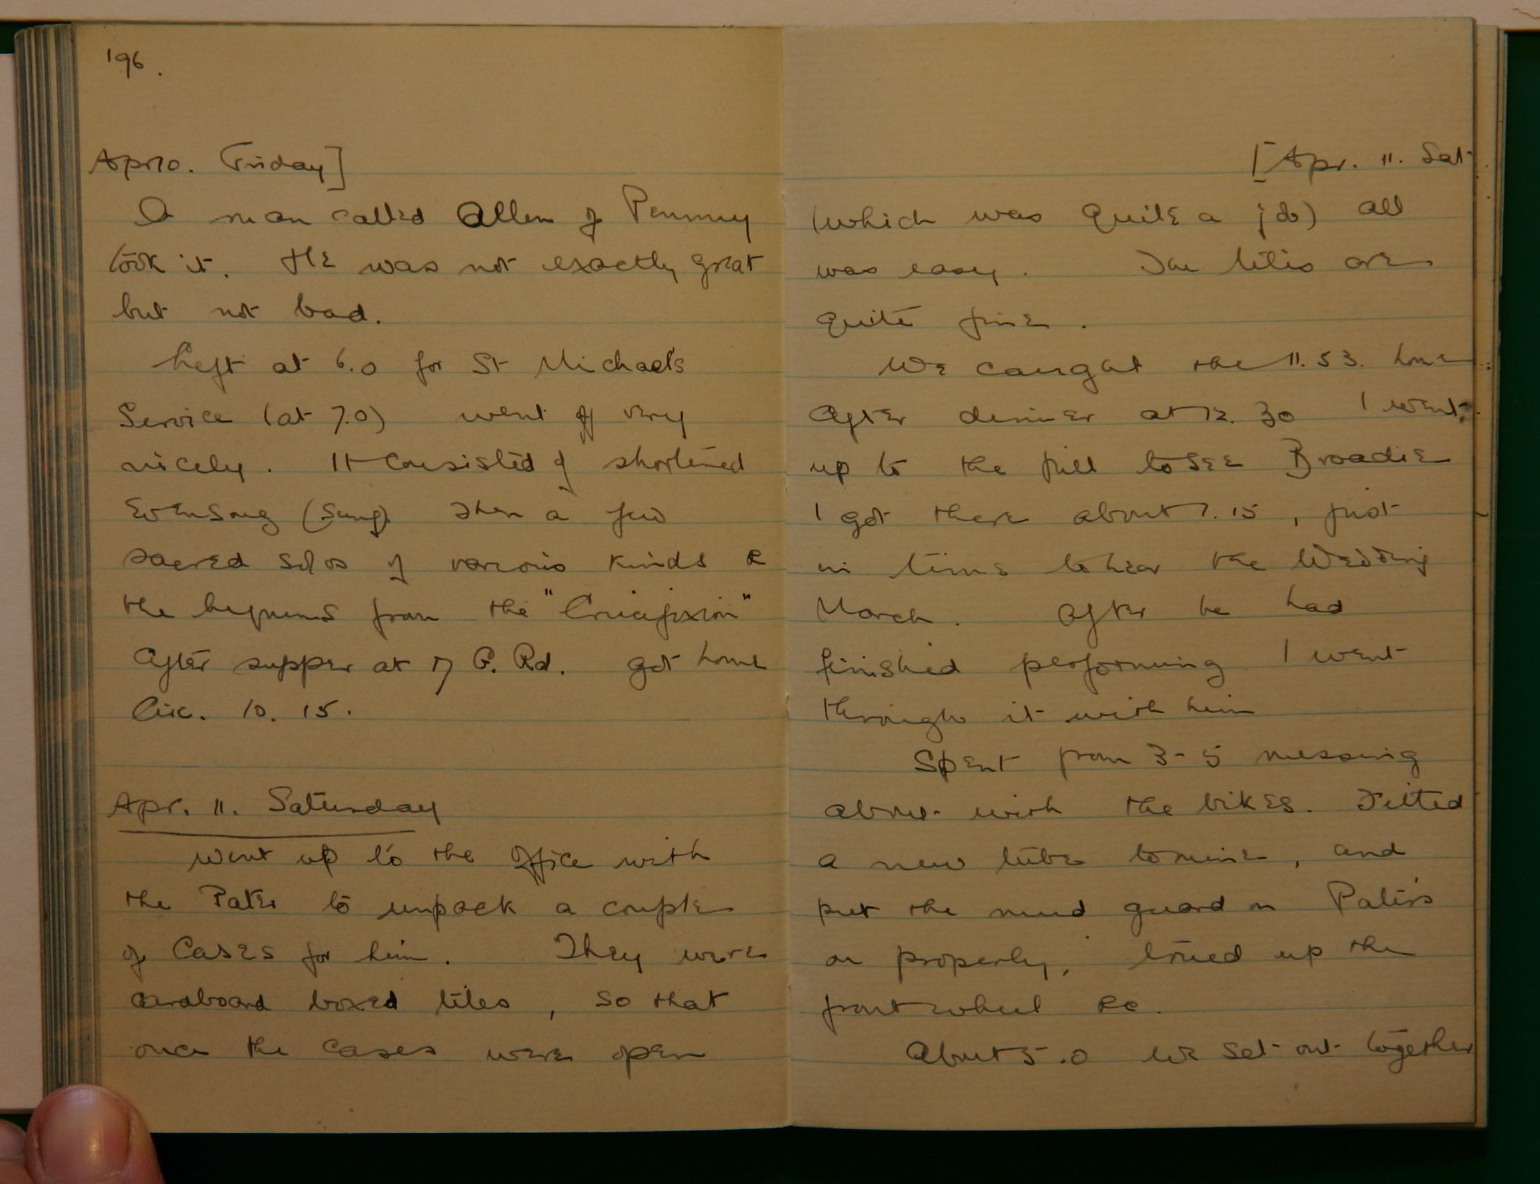 196.
Apr 10. Friday]
A man called Allen of Penmmy
took it. He was not exactly great
but not bad.
Left at 6.0 for St Michael's
Service (at 7.0) went off very
nicely. It consisted of shortened
Evensong (sung) then a few
sacred solos of various kinds &
the hymns from the "Crucifixion"
After supper at 17 P. Rd. got home
Circ. 10.15.
Apr. 11. Saturday
Went up to the office with
the Pater to unpack a couple
of cases for him. They were
cardboard boxed tiles, so that
once the cases were open
[Apr. 11. Sat.
(which was quite a job) all
was easy. The tiles are
quite fine.
We caught the 11.53. home
After dinner at 12.30 I went
up to the hill to see Broadie
I got there about 1.15, just
in time to hear the Wedding
March. After he had
finished performing I went
through it with him
Spent from 3-5 messing
about with the bikes. Fitted
a new tube to mine, and
put the mud guard on Pater's
on properly, trued up the
front wheel &c.
About 5.0 we set out together